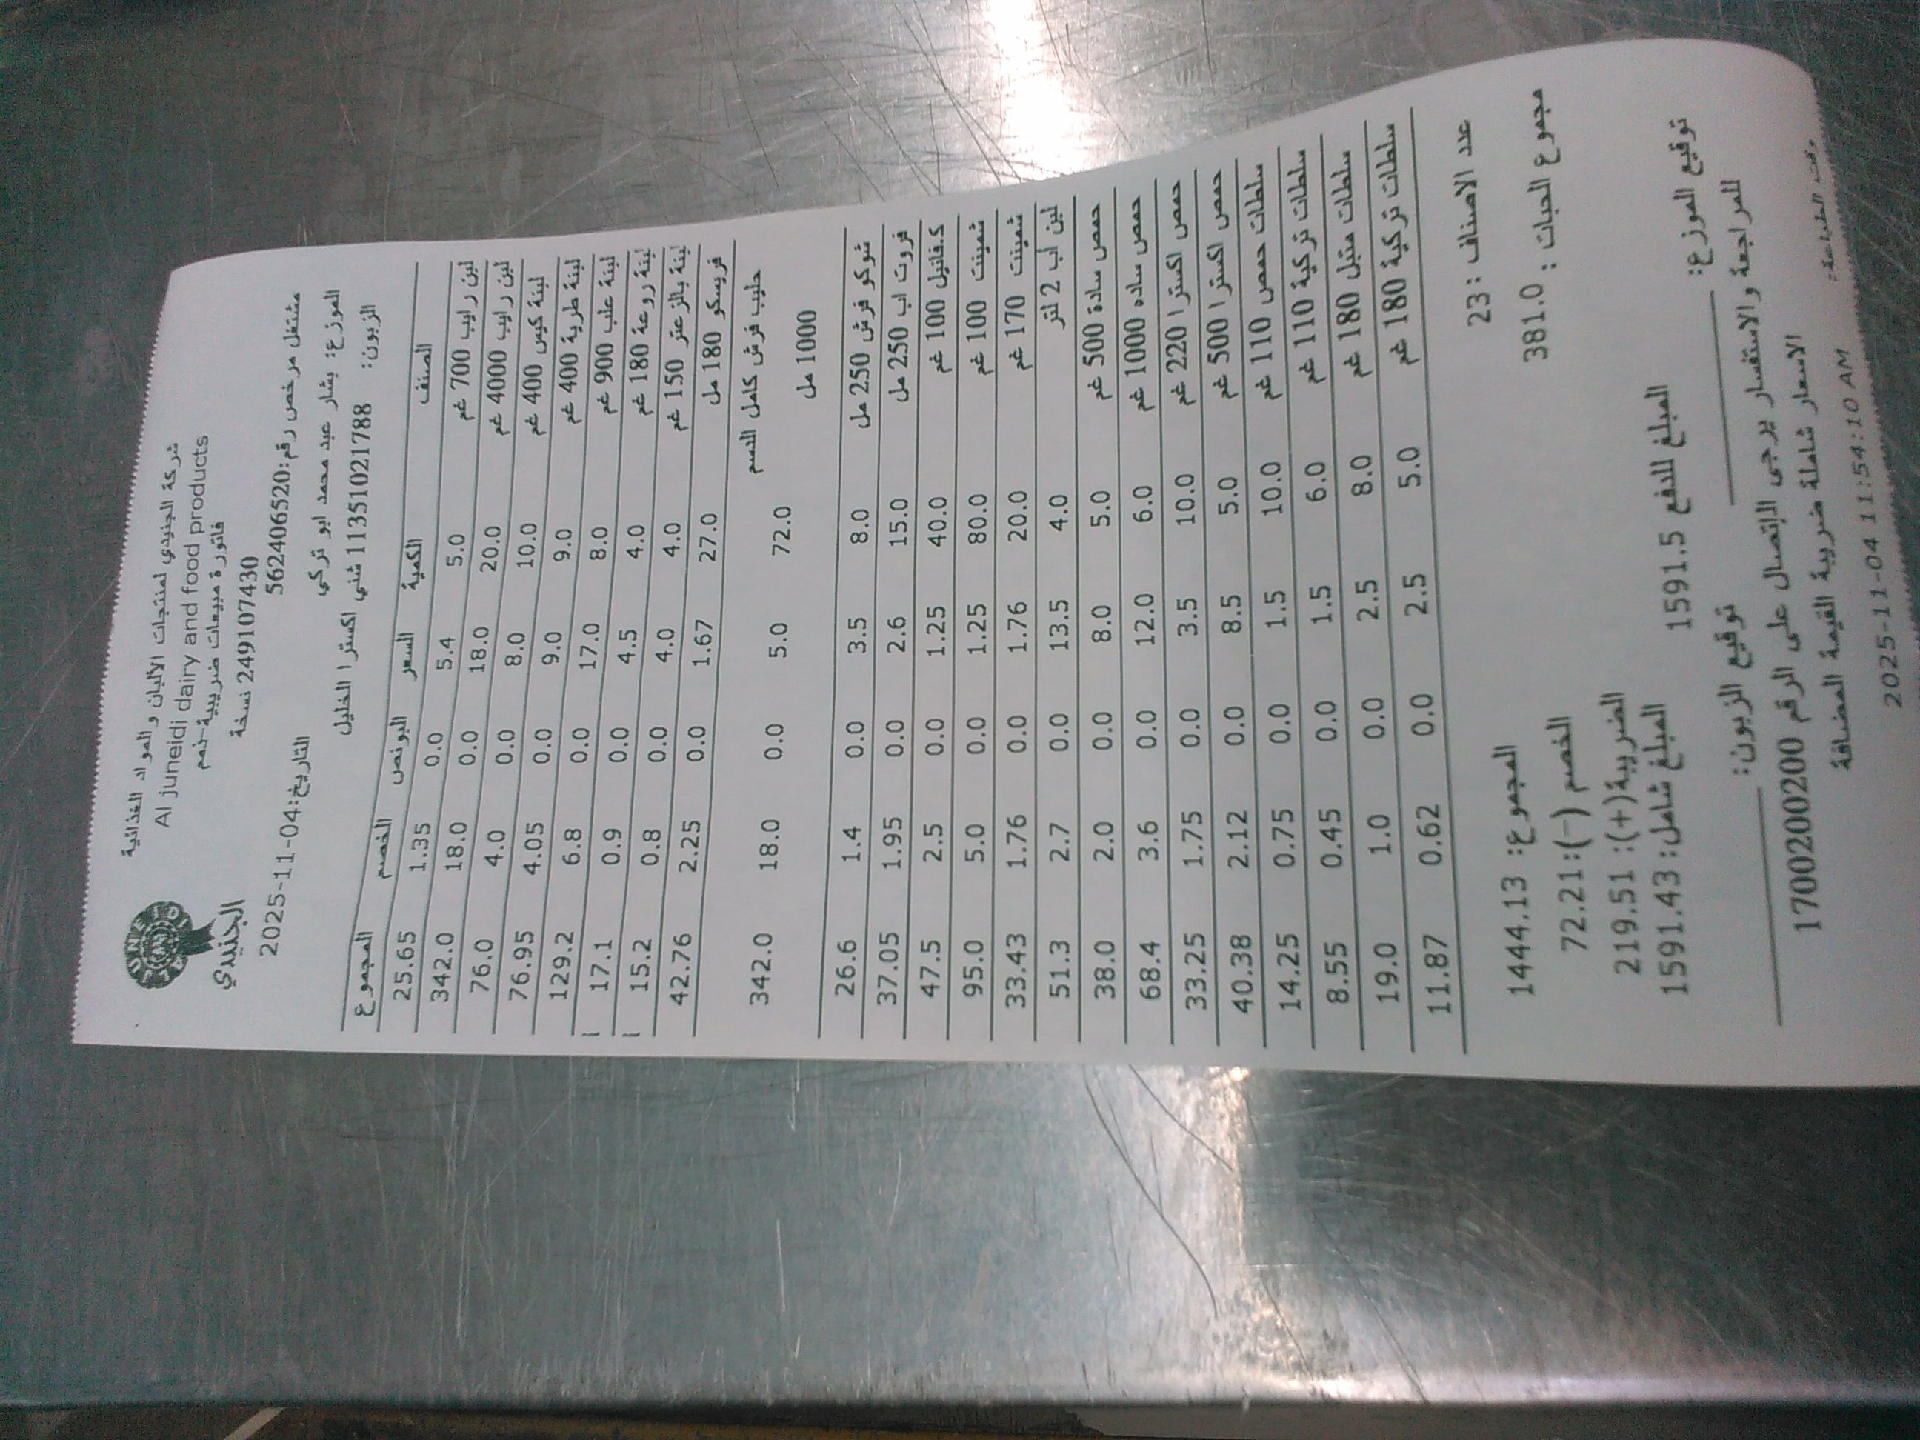 شركة الجنيدي لمنتجات الألبان والمواد الغذائية
Al juneidi dairy and food products
فاتورة مبيعات ضريبية-ذمم
249107430 نسخة
الجنيدي
مشتغل مرخص رقم:562406520
التاريخ:2025-11-04
الموزع: بشار عبد محمد ابو تركي
الزبون: 11351021788 شني اكسترا الخليل
الصنف الكمية السعر البونص الخصم المجموع
لبن رايب 700 غم 5.0 5.4 0.0 1.35 25.65
لبن رايب 4000 غم 20.0 18.0 0.0 18.0 342.0
لبنة كيس 400 غم 10.0 8.0 0.0 4.0 76.0
لبنة طرية 400 غم 9.0 9.0 0.0 4.05 76.95
لبنة علب 900 غم 8.0 17.0 0.0 6.8 129.2
لبنة روعة 180 غم 4.0 4.5 0.0 0.9 17.1
لبنة بالزعتر 150 غم 4.0 4.0 0.0 0.8 15.2
فريسكو 180 مل 27.0 1.67 0.0 2.25 42.76
حليب فرش كامل الدسم 72.0 5.0 0.0 18.0 342.0
1000 مل
شوكو فرش 250 مل 8.0 3.5 0.0 1.4 26.6
فروت اب 250 مل 15.0 2.6 0.0 1.95 37.05
ك.فانيل 100 غم 40.0 1.25 0.0 2.5 47.5
شمينت 100 غم 80.0 1.25 0.0 5.0 95.0
شمينت 170 غم 20.0 1.76 0.0 1.76 33.43
لبن اب 2 لتر 4.0 13.5 0.0 2.7 51.3
حمص سادة 500 غم 5.0 8.0 0.0 2.0 38.0
حمص ساده 1000 غم 6.0 12.0 0.0 3.6 68.4
حمص اكسترا 220 غم 10.0 3.5 0.0 1.75 33.25
حمص اكسترا 500 غم 5.0 8.5 0.0 2.12 40.38
سلطات حمص 110 غم 10.0 1.5 0.0 0.75 14.25
سلطات تركية 110 غم 6.0 1.5 0.0 0.45 8.55
سلطات متبل 180 غم 8.0 2.5 0.0 1.0 19.0
سلطات تركية 180 غم 5.0 2.5 0.0 0.62 11.87
عدد الاصناف : 23
المجموع: 1444.13
مجموع الحبات : 381.0
الخصم (-):72.21
الضريبة(+): 219.51
المبلغ شامل: 1591.43
المبلغ للدفع 1591.5
توقيع الموزع:
توقيع الزبون:
للمراجعة والاستفسار يرجى الإتصال على الرقم 1700200200
الاسعار شاملة ضريبة القيمة المضافة
وقت الطباعة: 2025-11-04 11:54:10 AM